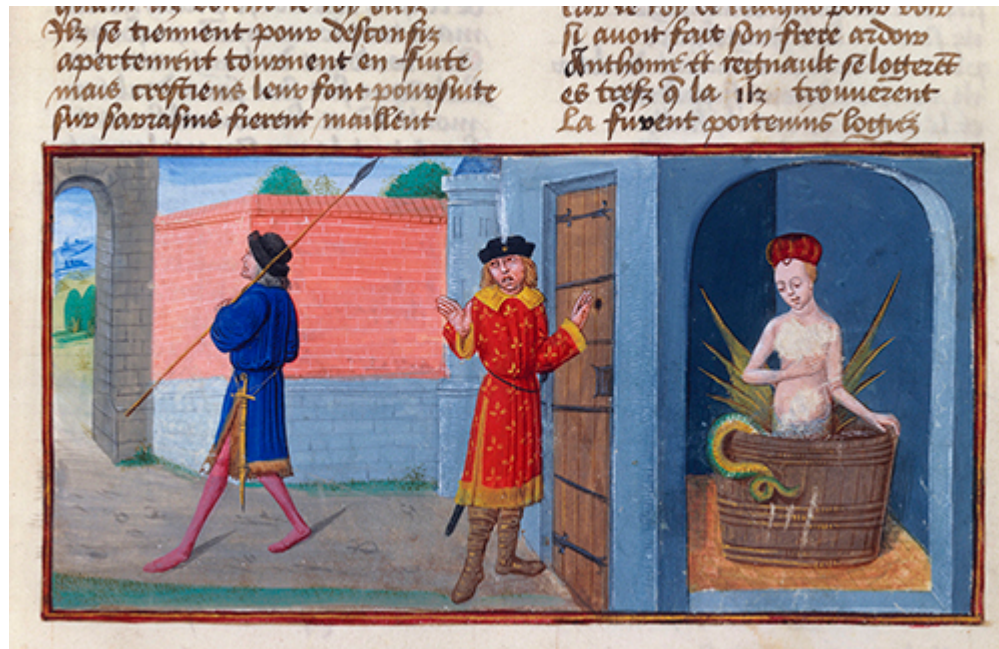 quant ilz voient le roy
Ilz se tiennent pour desconfiz
apertement tournent en fuite
mais crestiens leur font poursuite
sur sarrasins fierent maillent
car le roy de pour voir
si avoit fait son frere ardoir
Anthoine et regnault se logerẽt
es trefz q̃ la ilz trouverent
La furent poitevins logiez